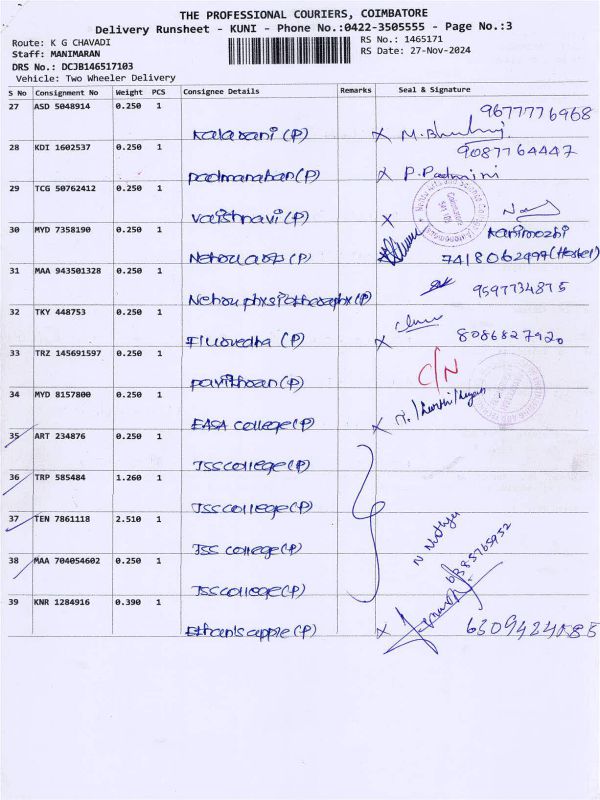 THE PROFESSIONAL COURIERS, COIMBATORE
Delivery Runsheet - KUNI - Phone No.:0422-3505555 - Page No.:3
Route: K G CHAVADI
RS No.: 1465171
Staff: MANIMARAN
RS Date: 27-Nov-2024
DRS No.: DCJB146517103
Vehicle: Two Wheeler Delivery
S No Consignment No Weight PCS Consignee Details Remarks Seal & Signature
27 ASD 5048914 0.250 1 9677776968
Kalarani (P) X
28 KDI 1602537 0.250 1 9087764447
padmanaban (P) X P. Padmini
29 TCG 50762412 0.250 1
vaishnavi (P) X
30 MYD 7358190 0.250 1 Kanimozhi
Nehru arts (P) 7418062499 (Hostel)
31 MAA 943501328 0.250 1 9597734875
Nehru physiotheraphy (P)
32 TKY 448753 0.250 1
(P) X 8086827920
33 TRZ 145691597 0.250 1 C/N
pavithran (P)
34 MYD 8157800 0.250 1
EASA college (P) X
35 ART 234876 0.250 1
JSS college (P)
36 TRP 585484 1.260 1
JSS college (P)
37 TEN 7861118 2.510 1
JSS college (P)
38 MAA 704054602 0.250 1
JSS college (P)
39 KNR 1284916 0.390 1
apple (P) X